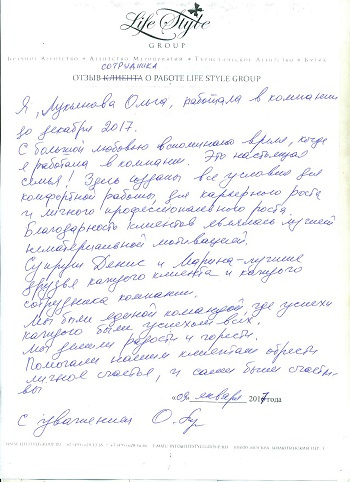 Life Style
GROUP
Брачное Агентство • Агентство Мероприятий • Туристическое Агентство • Бутик
СОТРУДНИКА
ОТЗЫВ КЛИЕНТА О РАБОТЕ LIFE STYLE GROUP
Я, Лукьянова Ольга, работала в компании
до декабря 2017.
С большой любовью вспоминаю время, когда
я работала в компании. Это настоящая
семья! Здесь созданы все условия для
комфортной работы, для карьерного роста
и личного профессионального роста.
Благодарность клиентов являлась лучшей
нематериальной мотивацией.
Супруги Денис и Марина - лучшие
друзья каждого клиента и каждого
сотрудника компании.
Мы были единой командой, где успехи
каждого были успехом всех.
Мы делили радости и горести.
Помогали нашим клиентам обрести
личное счастье, и сами были счастли-
вы
«09» января 2017 года
С уважением